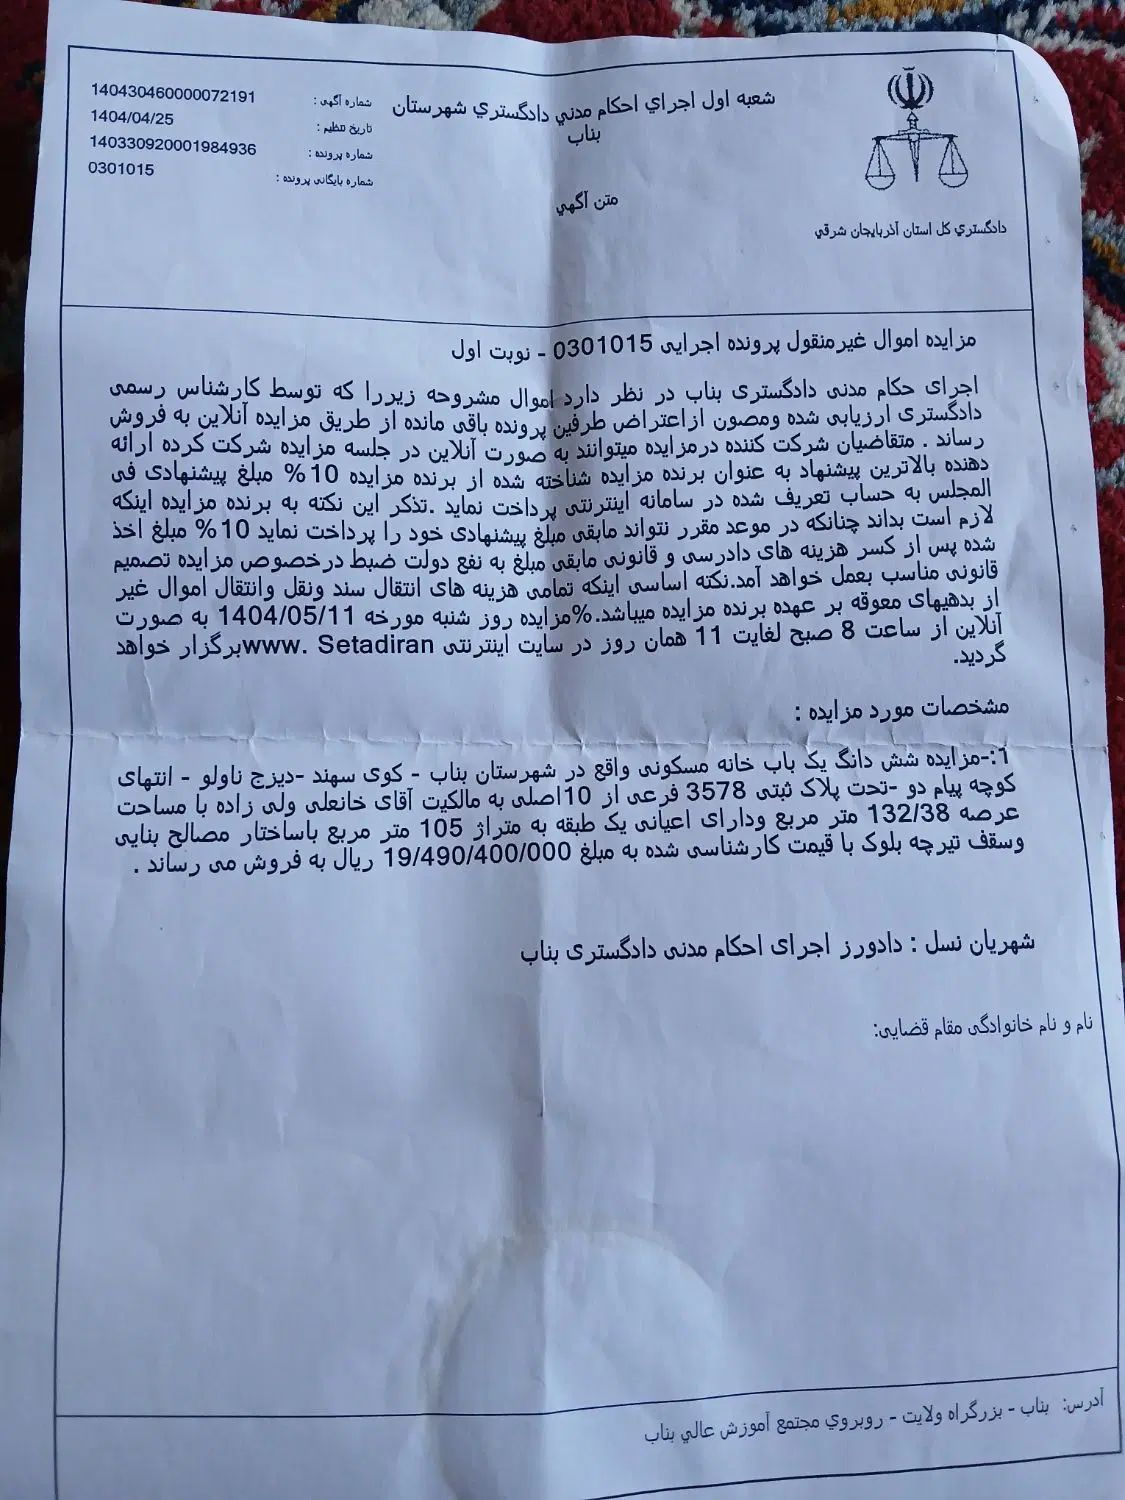 شعبه اول اجراي احکام مدني دادگستري شهرستان
بناب
متن آگهي
دادگستري کل استان آذربایجان شرقي
شماره آگهی : 140430460000072191
تاریخ تنظیم : 1404/04/25
شماره پرونده : 140330920001984936
شماره بایگانی پرونده : 0301015
مزایده اموال غیرمنقول پرونده اجرایی 0301015 - نوبت اول
اجرای حکام مدنی دادگستری بناب در نظر دارد اموال مشروحه زیررا که توسط کارشناس رسمی
دادگستری ارزیابی شده ومصون ازاعتراض طرفین پرونده باقی مانده از طریق مزایده آنلاین به فروش
رساند . متقاضیان شرکت کننده درمزایده میتوانند به صورت آنلاین در جلسه مزایده شرکت کرده ارائه
دهنده بالاترین پیشنهاد به عنوان برنده مزایده شناخته شده از برنده مزایده 10% مبلغ پیشنهادی فی
المجلس به حساب تعریف شده در سامانه اینترنتی پرداخت نماید .تذکر این نکته به برنده مزایده اینکه
لازم است بداند چنانکه در موعد مقرر نتواند مابقی مبلغ پیشنهادی خود را پرداخت نماید 10% مبلغ اخذ
شده پس از کسر هزینه های دادرسی و قانونی مابقی مبلغ به نفع دولت ضبط درخصوص مزایده تصمیم
قانونی مناسب بعمل خواهد آمد.نکته اساسی اینکه تمامی هزینه های انتقال سند ونقل وانتقال اموال غیر
از بدهیهای معوقه بر عهده برنده مزایده میباشد.%مزایده روز شنبه مورخه 1404/05/11 به صورت
آنلاین از ساعت 8 صبح لغایت 11 همان روز در سایت اینترنتی www. Setadiranبرگزار خواهد
گردید.
مشخصات مورد مزایده :
1:-مزایده شش دانگ یک باب خانه مسکونی واقع در شهرستان بناب - کوی سهند -دیزج ناولو - انتهای
کوچه پیام دو -تحت پلاک ثبتی 3578 فرعی از 10اصلی به مالکیت آقای خانعلی ولی زاده با مساحت
عرصه 132/38 متر مربع ودارای اعیانی یک طبقه به متراژ 105 متر مربع باساختار مصالح بنایی
وسقف تیرچه بلوک با قیمت کارشناسی شده به مبلغ 19/490/400/000 ریال به فروش می رساند .
شهریان نسل : دادورز اجرای احکام مدنی دادگستری بناب
نام و نام خانوادگی مقام قضایی:
آدرس: بناب - بزرگراه ولایت - روبروي مجتمع آموزش عالي بناب